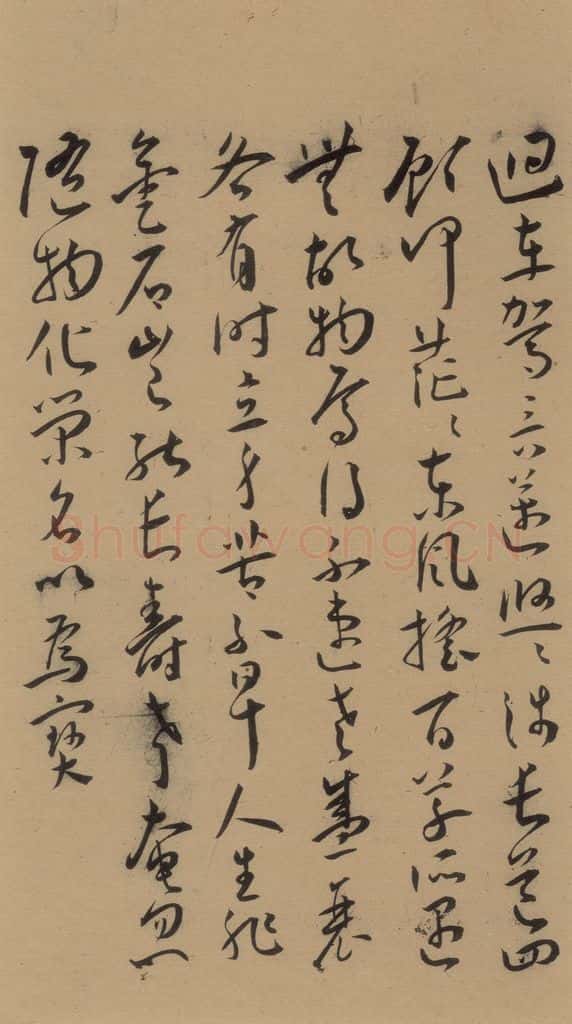 迴車駕言邁悠〻涉長道四
顧何茫〻東風搖百草所遇
無故物焉得不速老盛衰
各有時立身苦不早人生非
金石豈能長壽考奄忽
隨物化榮名以爲寶
Shufawang.CN